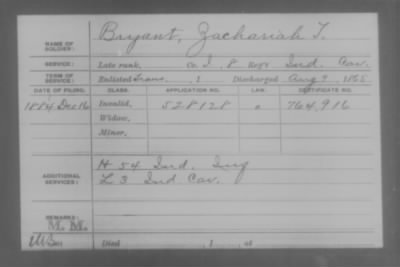 NAME OF SOLDIER: Bryant, Zachariah T.
SERVICE: Late rank, Co. I, 8 Reg't Ind. Cav.
TERM OF SERVICE: Enlisted Trans., 1 Discharged Aug 9, 1865
DATE OF FILING. CLASS. APPLICATION NO. LAW. CERTIFICATE NO.
1884 Dec 16 Invalid, 528128 764,916
Widow,
Minor,
H 54 Ind. Inf
ADDITIONAL SERVICES: L 3 Ind Cav.
REMARKS:
M. M.
Died , 1 , at